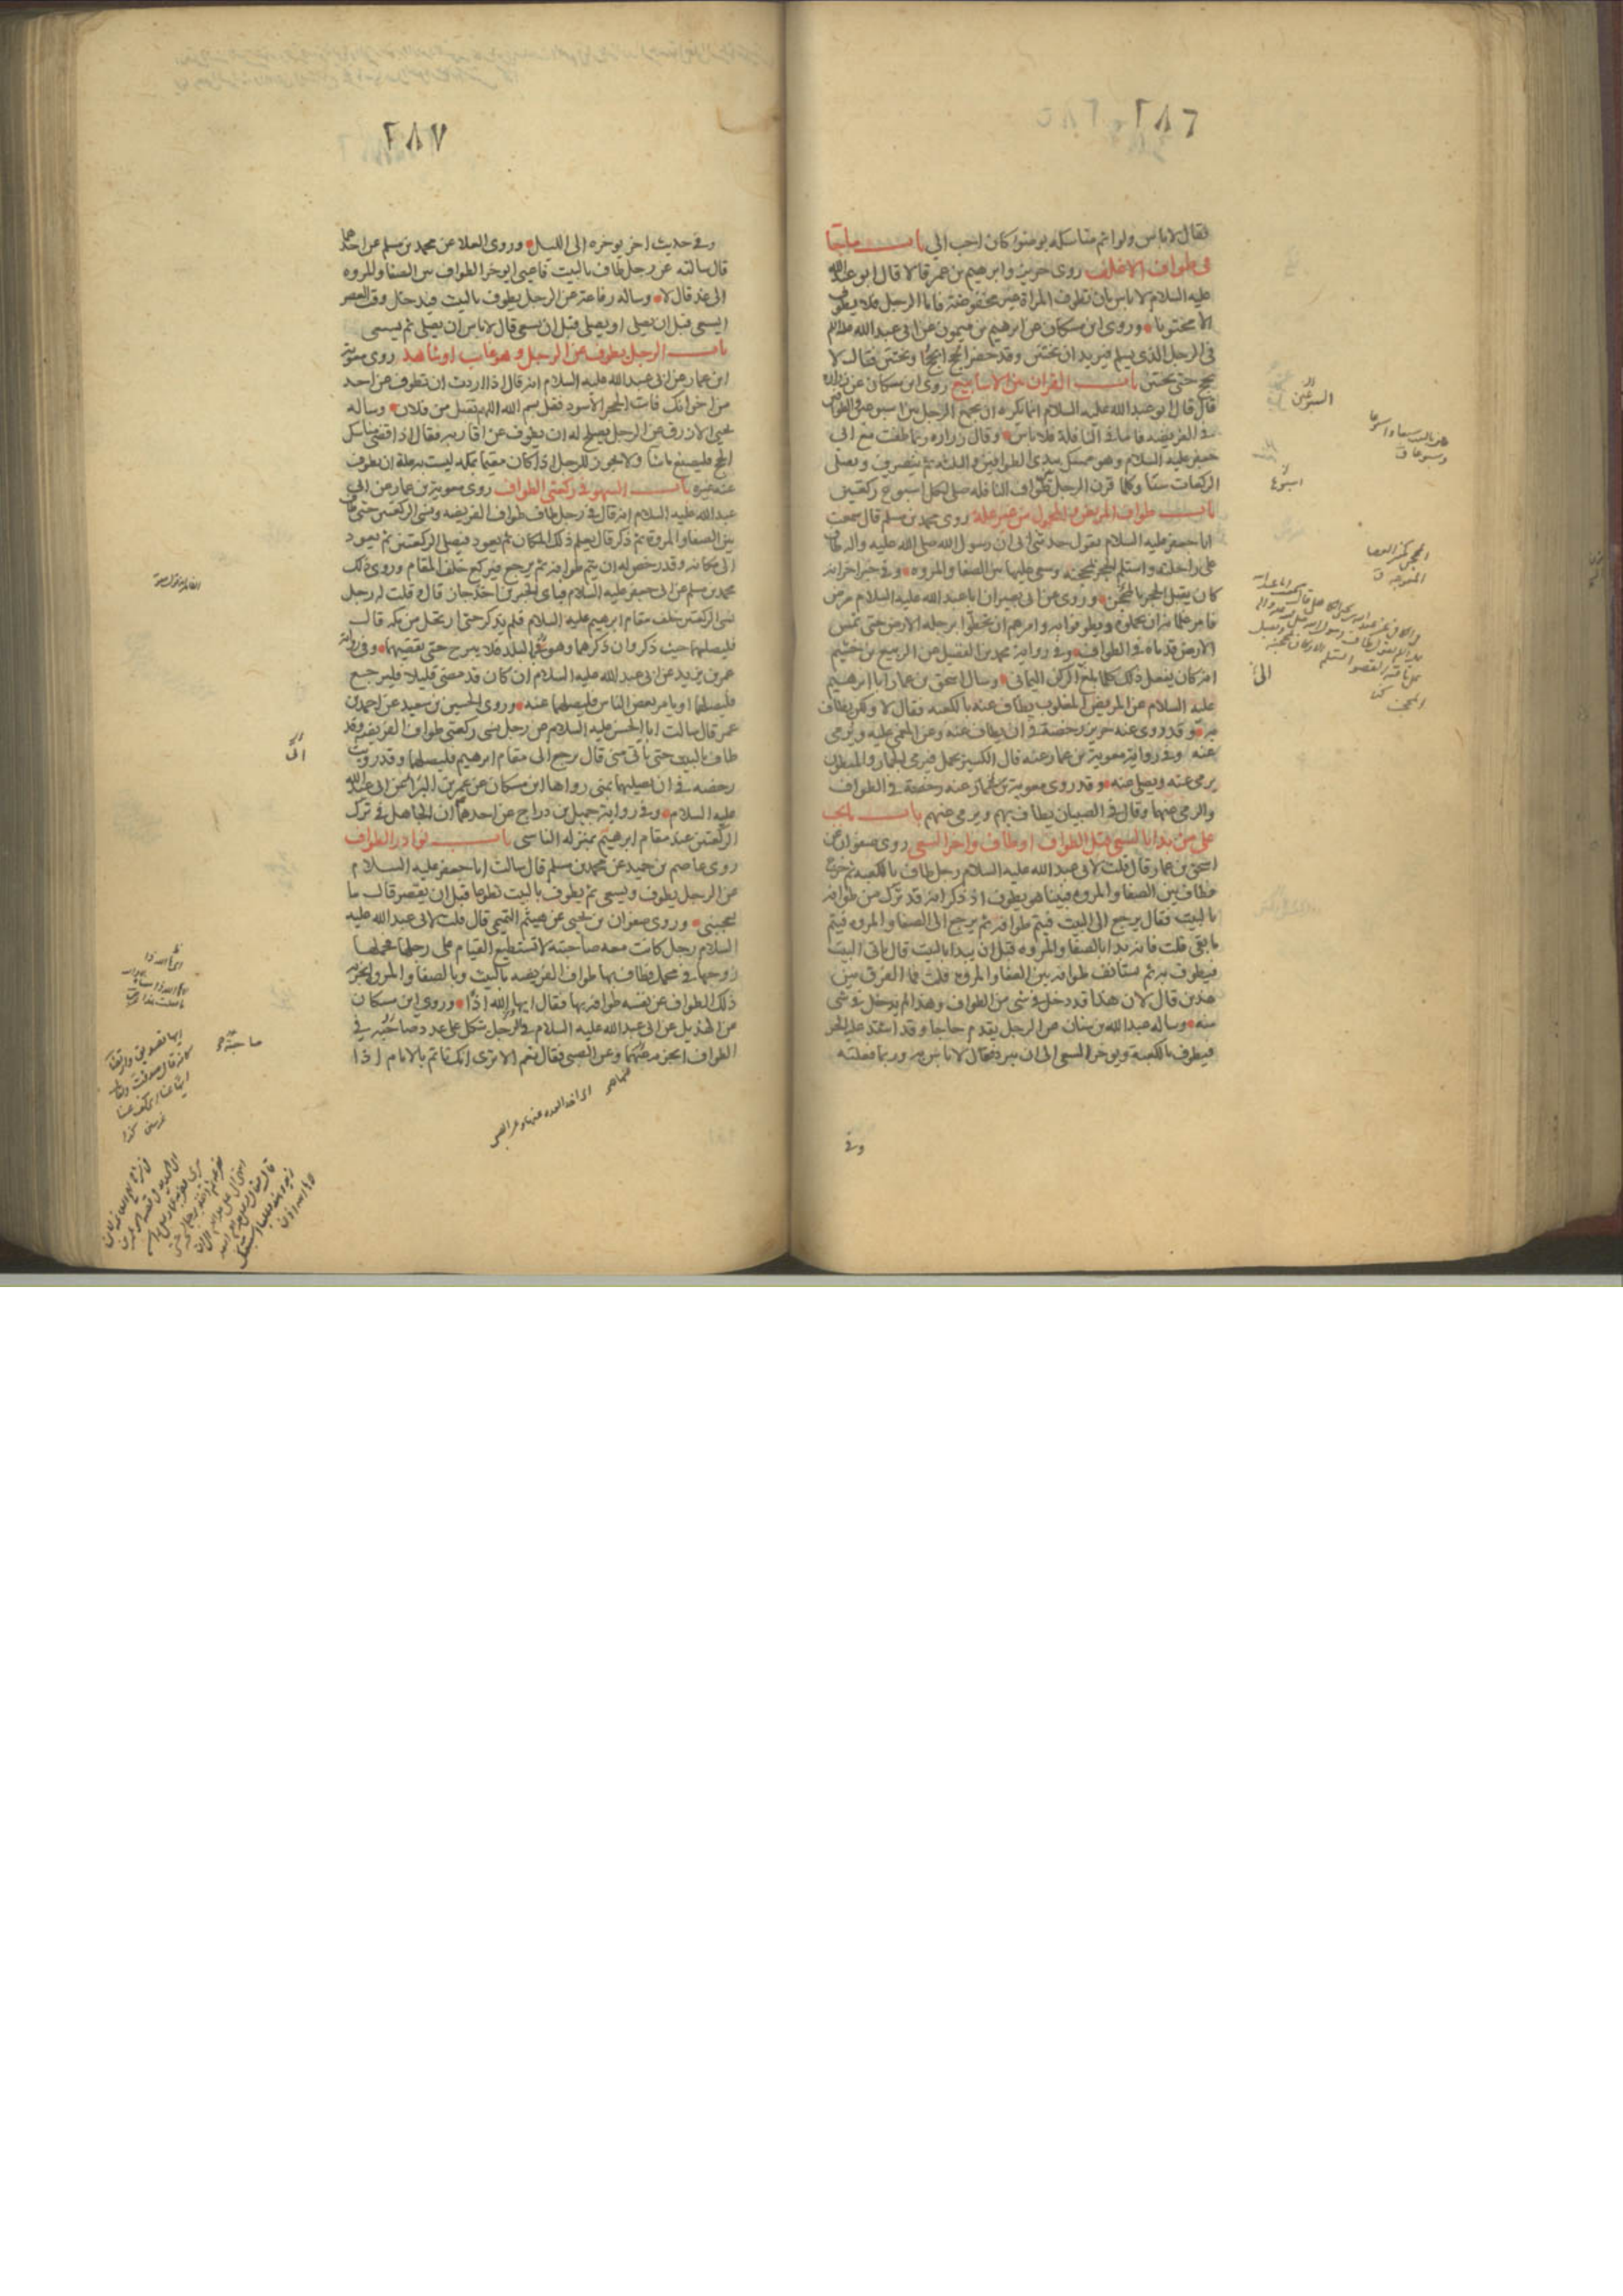 ٢٨٦
فقال لا باس ولو اتم مناسكه بوضوء كان احب الي باب ما جاء
في طواف الاغلف روى حريز وابرهيم بن عمر قالا قال ابو عبد الله
عليه السلام لا باس بان تطوف المراة غير مخفوضة فاما الرجل فلا يطوف
الا مختونا وروى ابن مسكان عن ابرهيم بن ميمون عن ابى عبد الله
في الرجل الذي يسلم فيريد ان يختتن وقد حضر الحج ايحج او يختتن فقال لا
يحج حتى يختتن باب القران بين الاسابيع روى ابن مسكان عن زراره
قال قال ابو عبد الله عليه السلام انما يكره ان يجمع الرجل بين السبوعين والطوافين
في الفريضه فاما في النافلة فلا باس وقال زراره ربما طفت مع ابى
جعفر عليه السلام وهو ممسك بيدى الطوافين والثلثة ثم ينصرف ويصلى
الركعات ستا وكلما قرن الرجل بين طواف النافله صلى لكل اسبوع ركعتين
باب طواف المريض والمحمول من غير علة روى محمد بن مسلم قال سمعت
ابا جعفر عليه السلام يقول حدثنى ابى ان رسول الله صلى الله عليه واله طاف
على راحلته واستلم الحجر بمحجنه وسعى عليها بين الصفا والمروه وفي خبر اخر انه
كان يقبل الحجر بالمحجن وروى عن ابى بصير ان ابا عبد الله عليه السلام مرض
فامر غلمانه ان يحملوه ويطوفوا به وامرهم ان يخطوا برجله الارض حتى تمس
الارض قدماه في الطواف وفي رواية محمد بن الفضيل عن الربيع بن خثيم
انه كان يفعل ذلك كلما بلغ الركن اليمانى وسال اسحق بن عمار ابا ابرهيم
عليه السلام عن المريض المغلوب يطاف عنه بالكعبه فقال لا ولكن يطاف
به وقد روى عنه حريز رخصة في ان يطاف عنه وعن المغمى عليه ويرمى
عنه وفي رواية معوية بن عمار عنه قال الكسير يحمل فيرمى الجمار والمبطون
يرمى عنه ويصلى عنه وقد روى معوية بن عمار عنه رخصة في الطواف
والرمى عنهما وقال في الصبيان يطاف بهم ويرمى عنهم باب ما يجب
على من بدا بالسعى قبل الطواف او طاف واخر السعى روى صفوان عن
اسحق بن عمار قال قلت لابى عبد الله عليه السلام رجل طاف بالكعبه ثم خرج
فطاف بين الصفا والمروه فبينا هو يطوف اذ ذكر انه قد ترك من طوافه
بالبيت فقال يرجع الى البيت فيتم طوافه ثم يرجع الى الصفا والمروه فيتم
ما بقى قلت فانه بدا بالصفا والمروه قبل ان يبدا بالبيت قال ياتى البيت
فيطوف به ثم يستانف طوافه بين الصفا والمروه قلت فما الفرق بين
هذين قال لان هذا قد دخل في شى من الطواف وهذا لم يدخل في شى
منه وساله عبد الله بن سنان عن الرجل يقدم حاجا وقد اشتد عليه الحر
فيطوف بالكعبة ويوخر السعى الى ان يبرد فقال لا باس به وربما فعلته
وفي
السبوعين
اسبوع
الى
٢٨٧
وفي حديث اخر يوخره الى الليل وروى العلا عن محمد بن مسلم عن احدهما
قال سالته عن رجل طاف بالبيت فاعيى ايوخر الطواف بين الصفا والمروه
الى غد قال لا وساله رفاعة عن الرجل يطوف بالبيت فيدخل وقت العصر
ايسعى قبل ان يصلى او يصلى قبل ان يسعى قال لا باس ان يصلى ثم يسعى
باب الرجل يطوف عن الرجل وهو غايب او شاهد روى معوية
ابن عمار عن ابى عبد الله عليه السلام انه قال اذا اردت ان تطوف عن احد
من اخوانك فات الحجر الاسود فقل بسم الله اللهم تقبل من فلان وساله
يحيى الازرق عن الرجل يصلح له ان يطوف عن اقاربه فقال اذا قضى مناسك
الحج فليصنع ما شا ولا يجوز للرجل اذا كان مقيما بمكه ليست به علة ان يطوف
عنه غيره باب السهو في ركعتى الطواف روى معوية بن عمار عن ابى
عبد الله عليه السلام انه قال في رجل طاف طواف الفريضه ونسى الركعتين حتى طاف
بين الصفا والمروة ثم ذكر قال يعلم ذلك المكان ثم يعود فيصلى الركعتين ثم يعود
الى مكانه وقد رخص له ان يتم طوافه ثم يرجع فيركع خلف المقام وروى ذلك
محمد بن مسلم عن ابى جعفر عليه السلام فباى الخبرين اخذ جاز قال وقلت له رجل
نسى الركعتين خلف مقام ابرهيم عليه السلام فلم يذكر حتى ارتحل من مكه قال
فليصلهما حيث ذكر وان ذكرهما وهو في البلد فلا يبرح حتى يقضيهما وفي رواية
عمر بن يزيد عن ابى عبد الله عليه السلام ان كان قد مضى قليلا فليرجع
فليصلهما او يامر بعض الناس فليصلهما عنه وروى الحسين بن سعيد عن احمد بن
عمر قال سالت ابا الحسن عليه السلام عن رجل نسى ركعتى طواف الفريضه وقد
طاف بالبيت حتى ياتى منى قال يرجع الى مقام ابرهيم فليصلهما وقد رويت
رخصه في ان يصليهما بمنى رواها ابن مسكان عن عمر بن البرا عن ابى عبد الله
عليه السلام وفي رواية جميل بن دراج عن احدهما ان الجاهل في ترك
الركعتين عند مقام ابرهيم بمنزله الناسى باب نوادر الطواف
روى عاصم بن حميد عن محمد بن مسلم قال سالت ابا جعفر عليه السلام
عن الرجل يطوف ويسعى ثم يطوف بالبيت تطوعا قبل ان يقصر قال ما
يعجبنى وروى صفوان بن يحيى عن هيثم التميمى قال قلت لابى عبد الله عليه
السلام رجل كانت معه صاحبته لا تستطيع القيام على رجلها فحملها
زوجها في محمل فطاف بها طواف الفريضه بالبيت وبالصفا والمروة ايجزيه
ذلك الطواف عن نفسه طوافه بها فقال ايها الله اذا وروى ابن مسكان
عن الهذيل عن ابى عبد الله عليه السلام في الرجل يتكل على عدد صاحبته في
الطواف ايجزيه عنهما وعن الصبى فقال نعم الا ترى انك تاتم بالامام اذا
الى
صاحبته